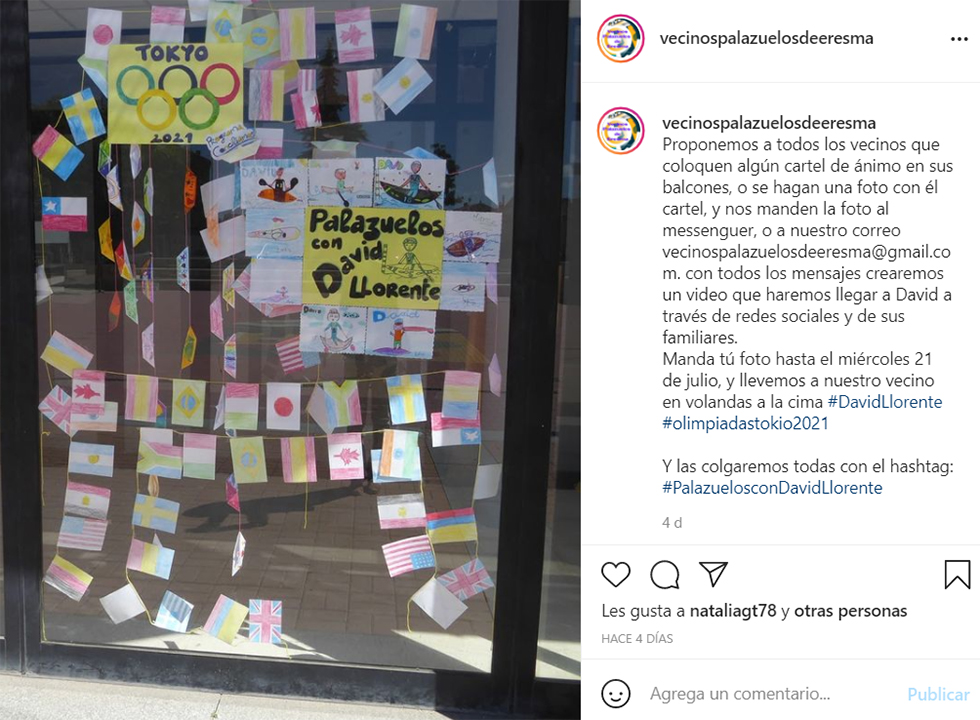 TOKYO
2021
DAVID
Palazuelos
con
David
LLorente
David
vecinospalazuelosdeeresma
vecinospalazuelosdeeresma
Proponemos a todos los vecinos que
coloquen algún cartel de ánimo en sus
balcones, o se hagan una foto con él
cartel, y nos manden la foto al
messenguer, o a nuestro correo
vecinospalazuelosdeeresma@gmail.co
m. con todos los mensajes crearemos
un video que haremos llegar a David a
través de redes sociales y de sus
familiares.
Manda tú foto hasta el miércoles 21
de julio, y llevemos a nuestro vecino
en volandas a la cima #DavidLlorente
#olimpiadastokio2021
Y las colgaremos todas con el hashtag:
#PalazuelosconDavidLlorente
4 d
Les gusta a nataliagt78 y otras personas
HACE 4 DÍAS
Agrega un comentario...
Publicar